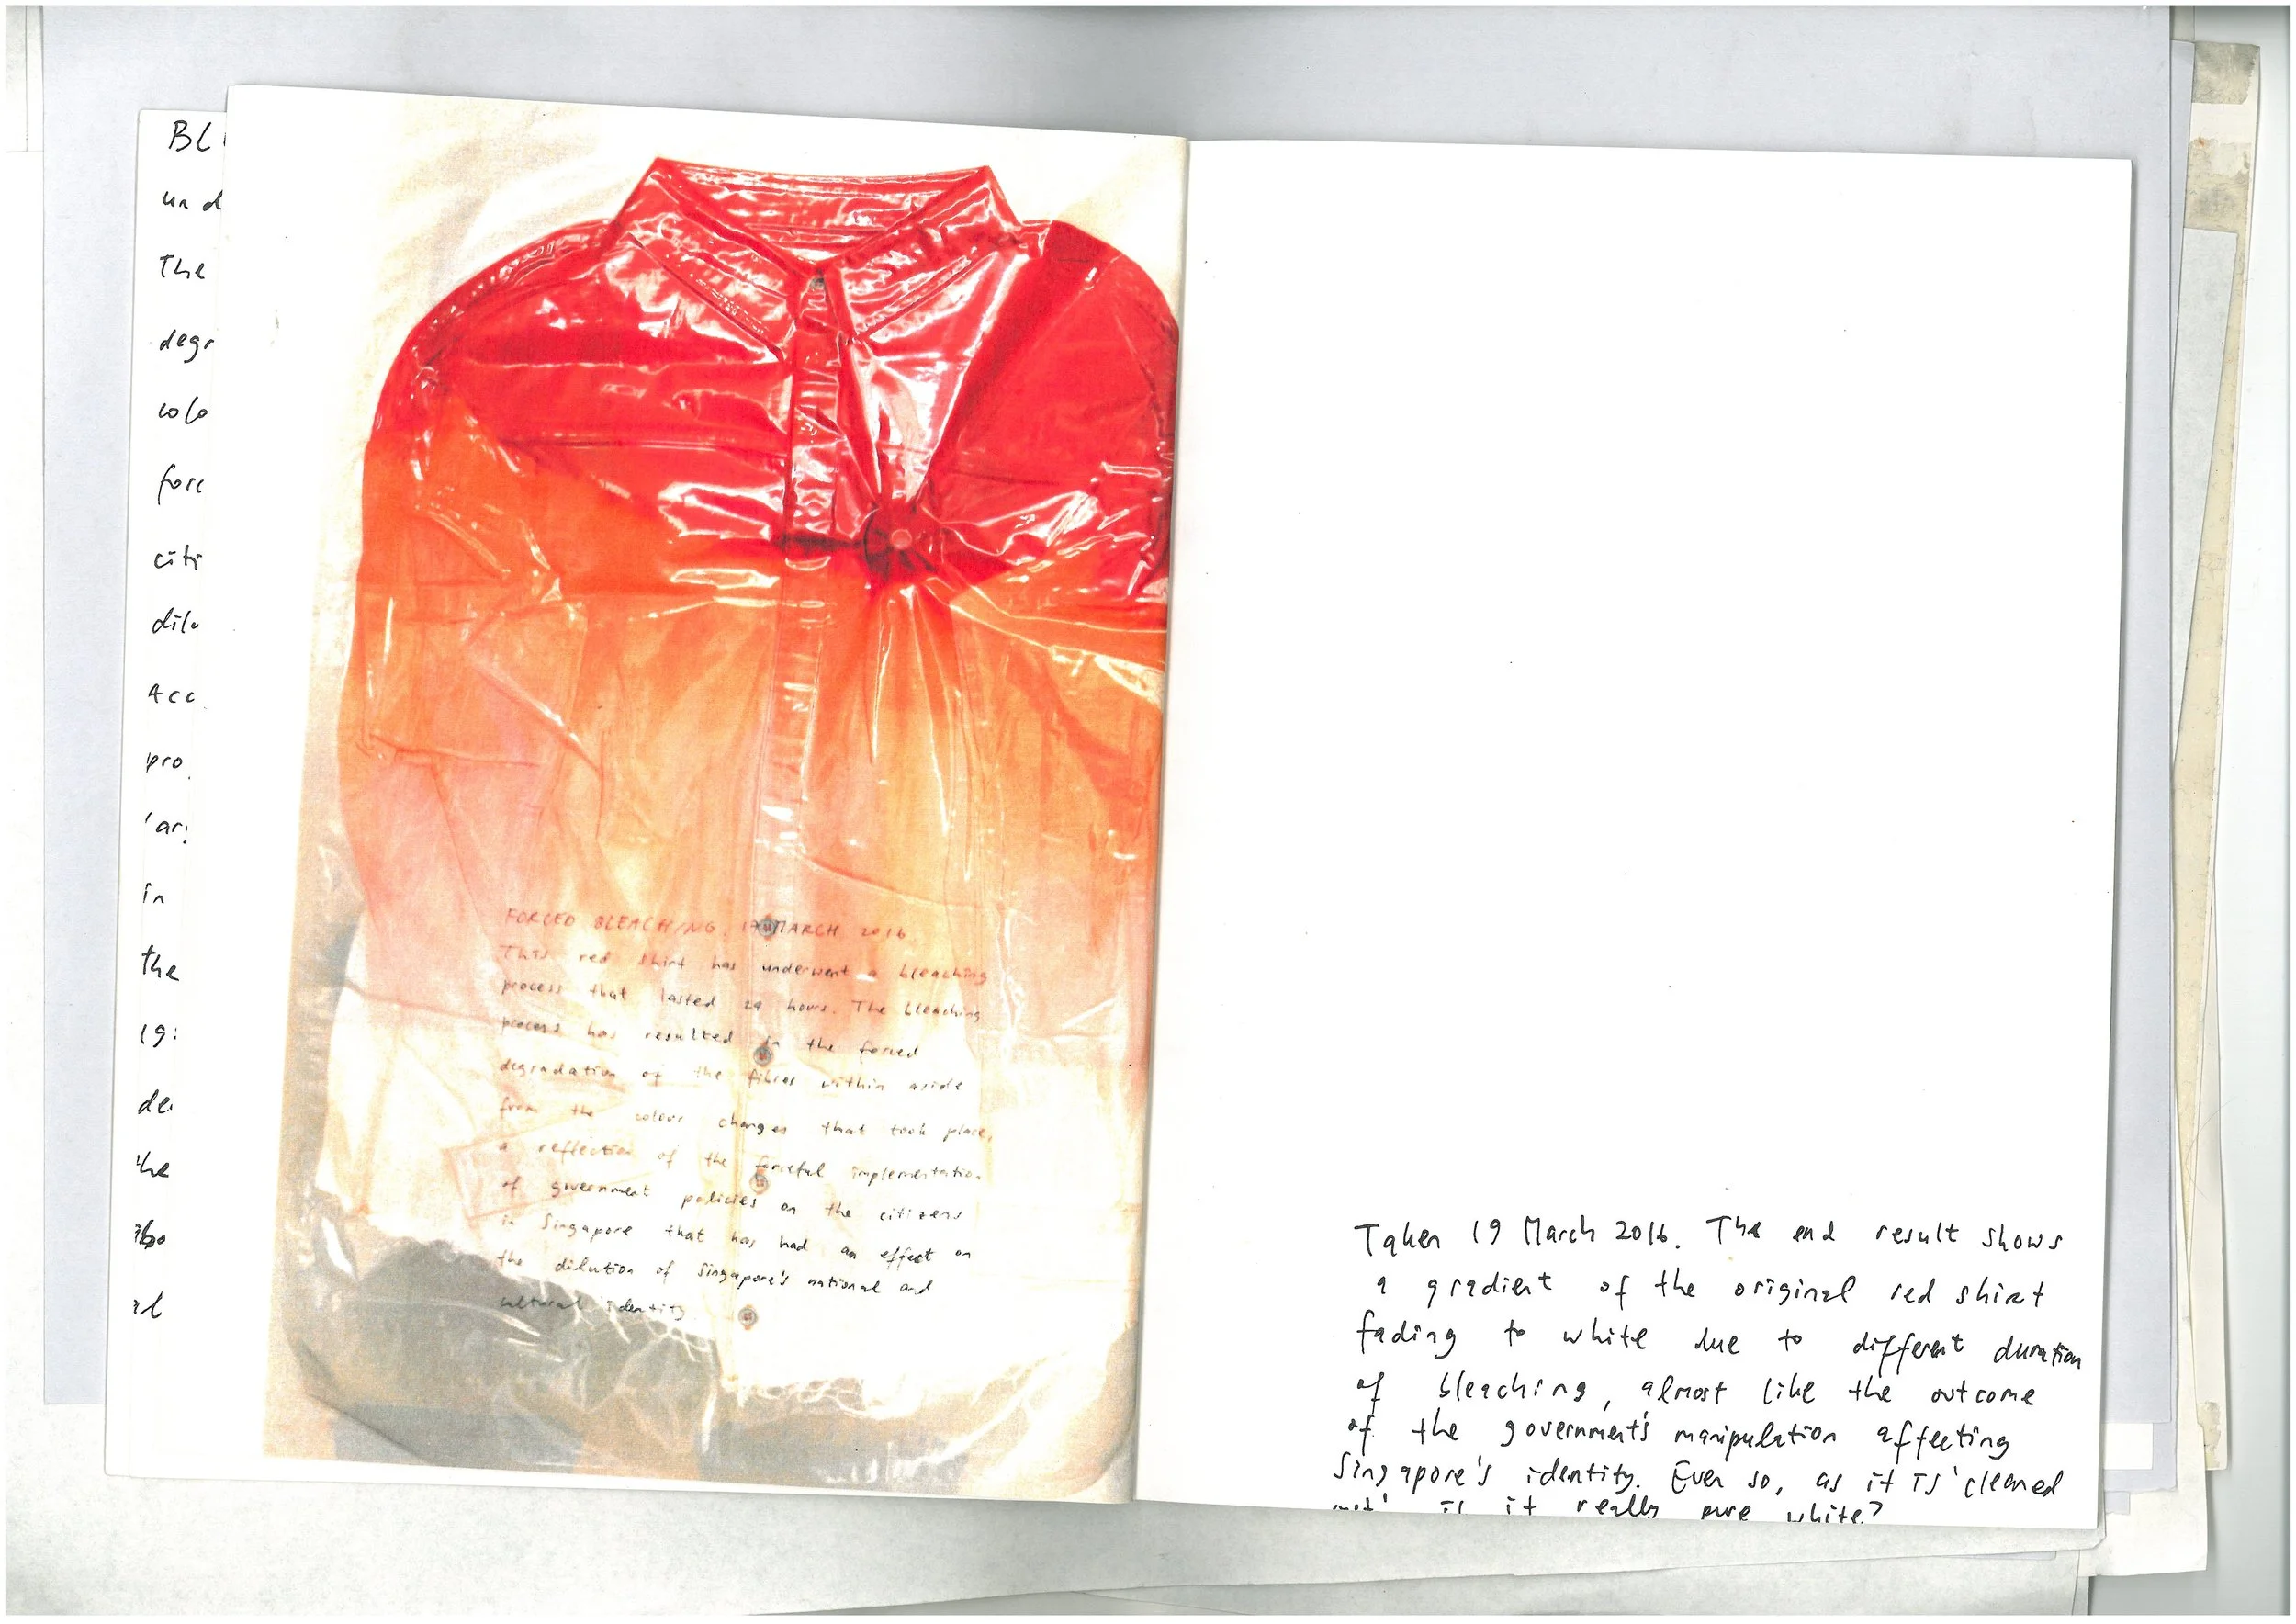 BL
und
The
degr
colo
forc
citi
dilu
Acc
pro
in
the
de
the
FORCED BLEACHING. 17 MARCH 2016.
This red shirt has underwent a bleaching
process that lasted 29 hours. The bleaching
process has resulted in the forced
degradation of the fibres within aside
from the colour changes that took place,
a reflection of the forceful implementation
of government policies on the citizens
in Singapore that has had an effect on
the dilution of Singapore's national and
cultural identity.
Taken 19 March 2016. The end result shows
a gradient of the original red shirt
fading to white due to different duration
of bleaching, almost like the outcome
of the government's manipulation affecting
Singapore's identity. Even so, as it is 'cleaned
out' is it really pure white?